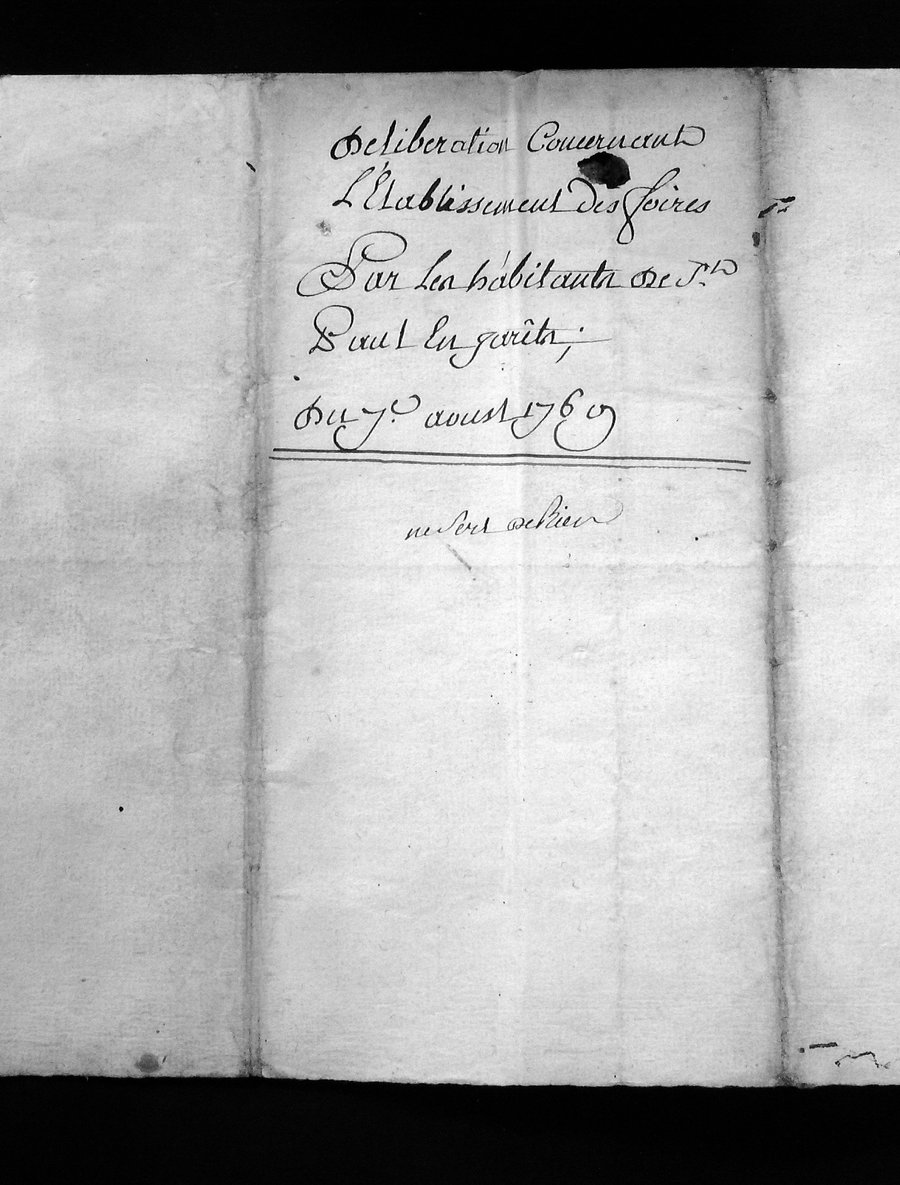 Deliberation Concernant
L'Etablissement des foires
Par les habitants De St.
Paul En jarêts;
Du 7e. aoust 1769
ne sert de Rien